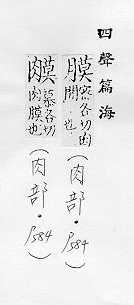 四聲篇海
膜 宻各切肉
間也 (肉部·P584)
慕各切
肉膜也 (肉部·P584)